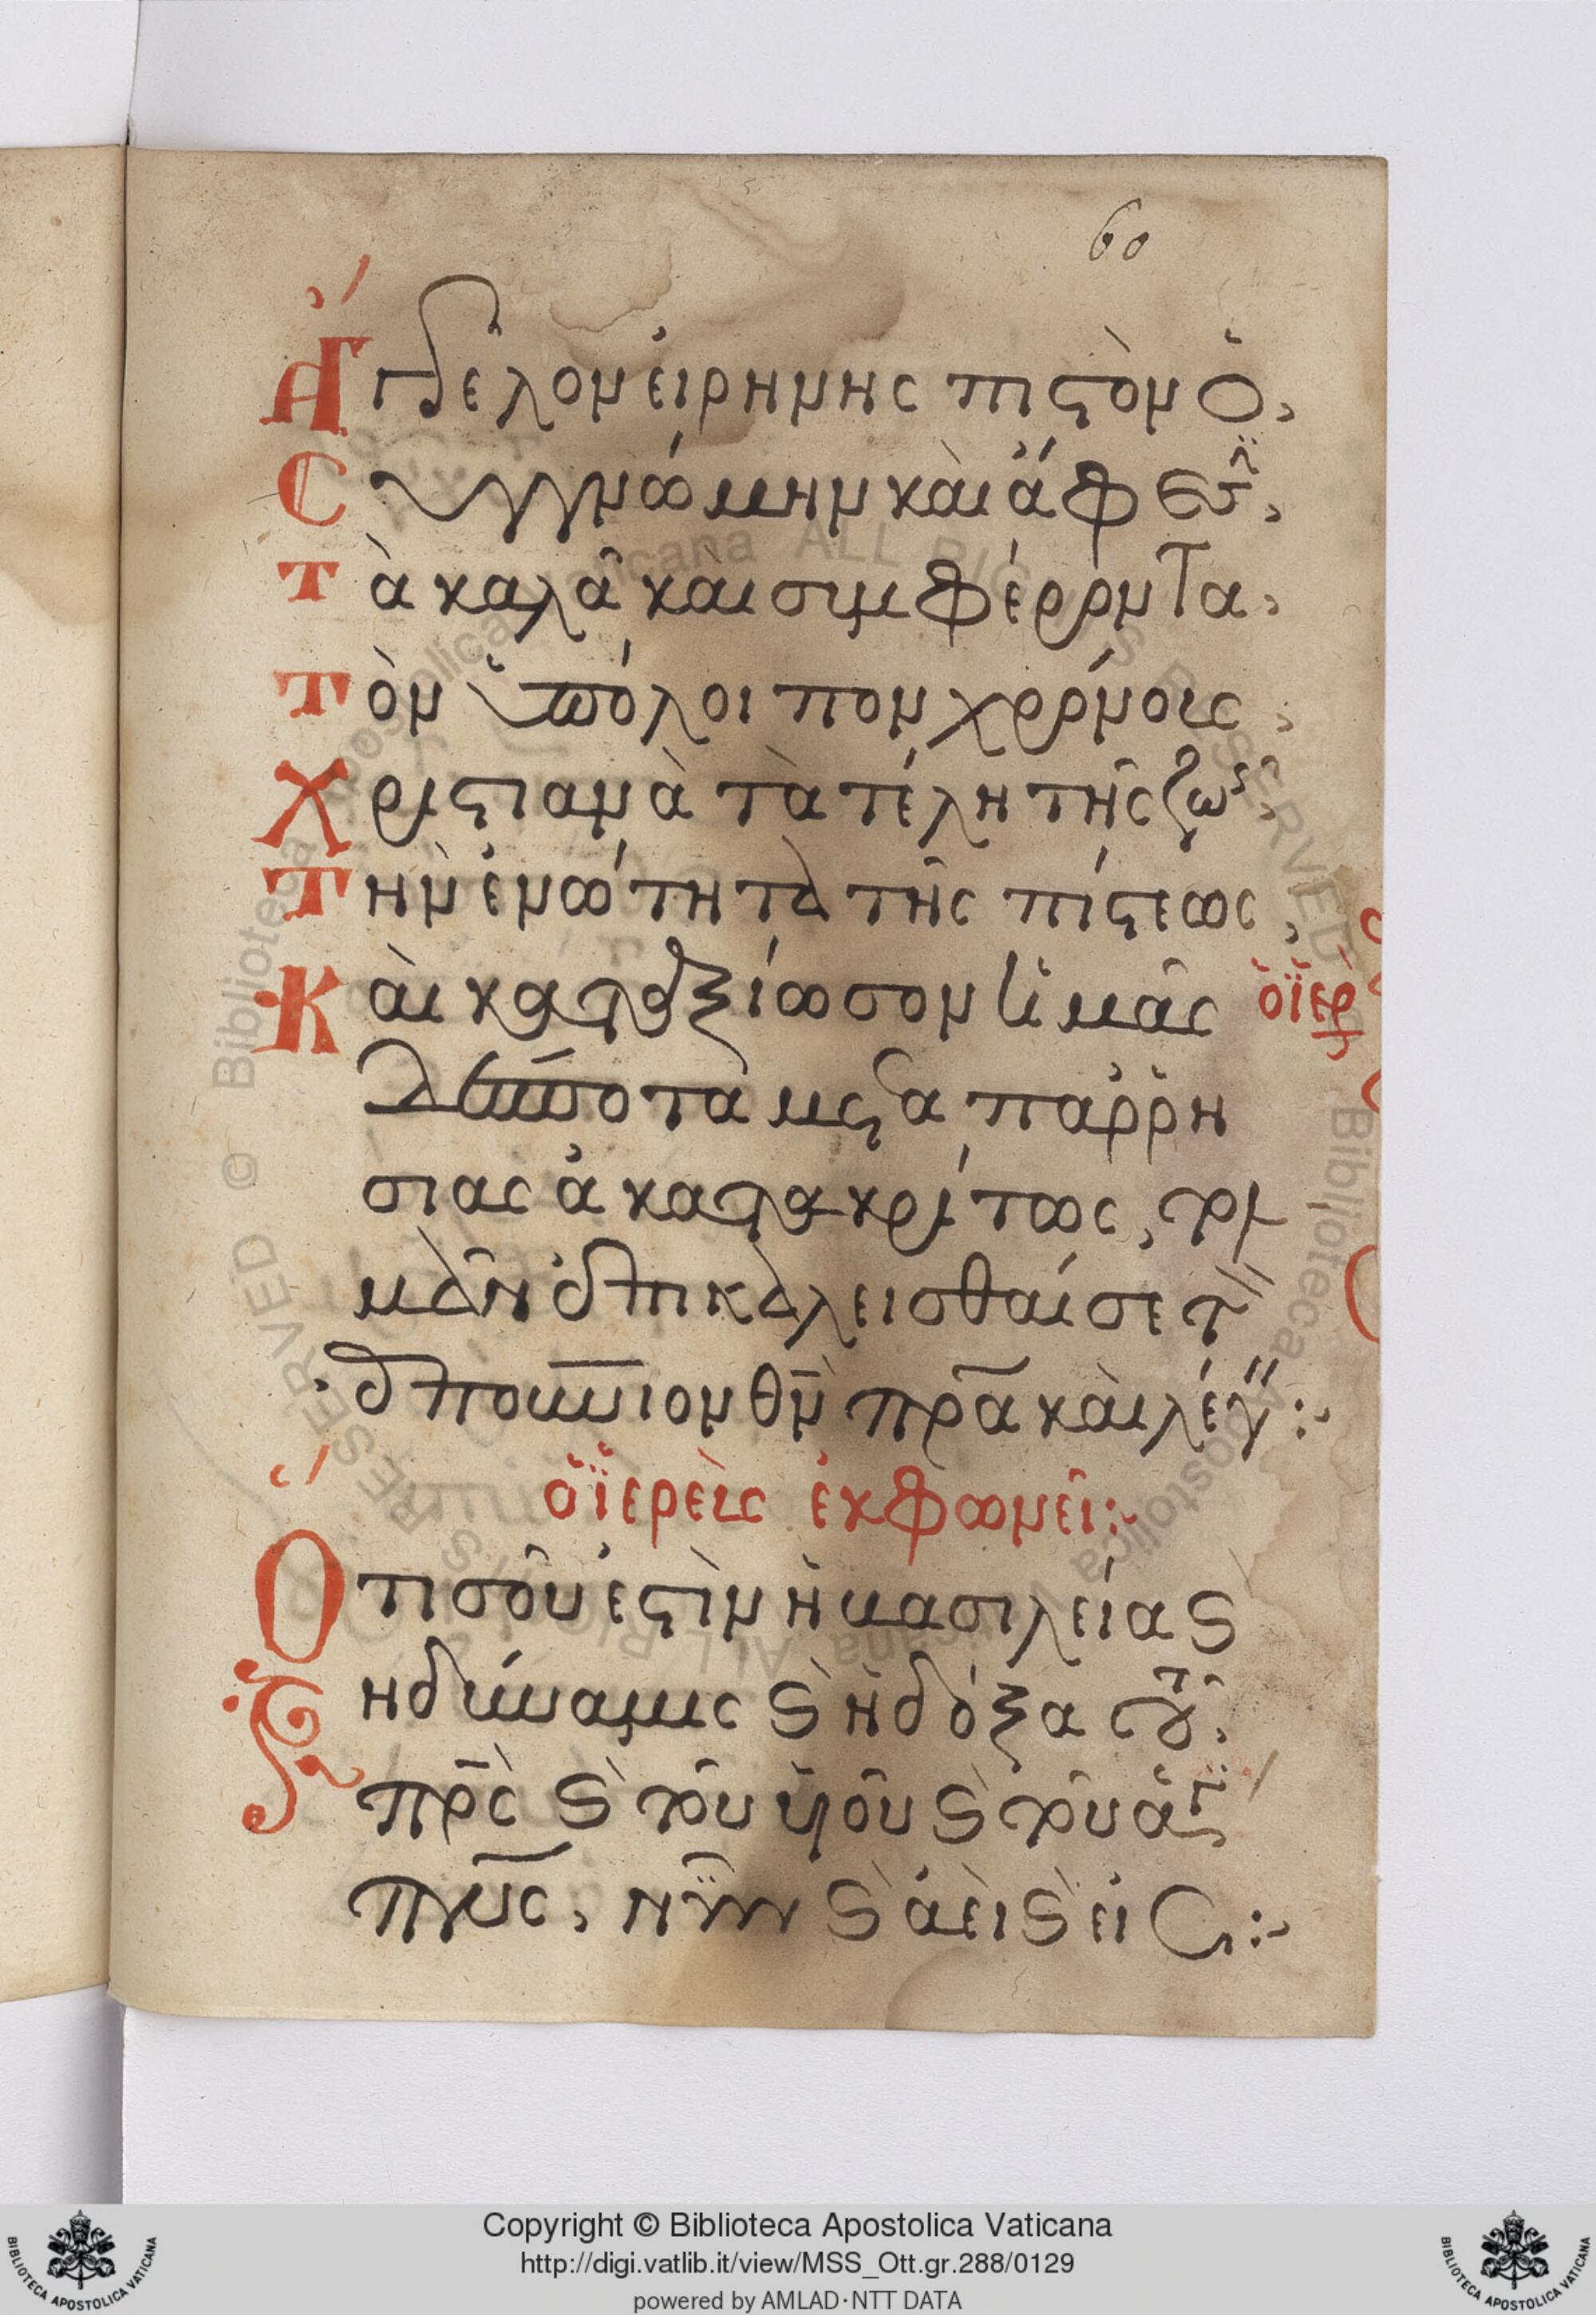 60
Ἄγγελον εἰρήνης πιστὸν ὁ,
Συγγνώμην καὶ ἄφεσ,
Τὰ καλὰ καὶ συμφέροντα,
Τὸν ὑπόλοιπον χρόνον
Χριστιανὰ τὰ τέλη τῆς ζω,
Τὴν ἑνώτητα τῆς πίστεως,
Καὶ καταξίωσον ἡμᾶς ὁ ἱερ
δέσποτα μετα παρρη
σιας ἀκατακρίτως, τολ
μᾶν ἐπικαλεισθαί σε τ
ἐπουνιον θν πρα καὶ λέγ :
ὁ ἱερεὺς ἐκφωνεῖ :
Ὅτι σοῦ ἐστὶν ἡ βασιλεία ϛ
η δύναμις ϛ ἡ δόξα τοῦ
πρς ϛ τοῦ υἱοῦ ϛ τοῦ ἁγ
πνς, νῦν ϛ ἀεὶ ϛ εἰ :
Copyright © Biblioteca Apostolica Vaticana
http://digi.vatlib.it/view/MSS_Ott.gr.288/0129
powered by AMLAD·NTT DATA
BIBLIOTECA APOSTOLICA VATICANA
BIBLIOTECA APOSTOLICA VATICANA